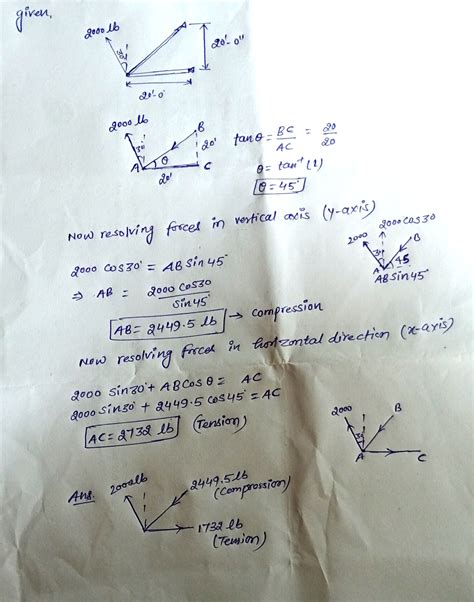 given,
2000 lb
30°
20'-0"
20'-0
2000 lb
30°
B
20'
A
θ
C
20'
tanθ = BC/AC = 20/20
θ = tan⁻¹(1)
θ = 45°
Now resolving forces in vertical axis (y-axis)
2000 cos30
2000
B
30
45
A
ABsin45°
2000 cos30° = AB sin45°
⇒ AB = 2000 cos30/sin45°
AB = 2449.5 lb → compression
Now resolving forces in horizontal direction (x-axis)
2000 sin30° + ABcosθ = AC
2000 sin30° + 2449.5 cos45° = AC
AC = 2732 lb (Tension)
2000
B
30
A
C
Ans.
2000lb
2449.5 lb
(Compression)
1732 lb
(Tension)